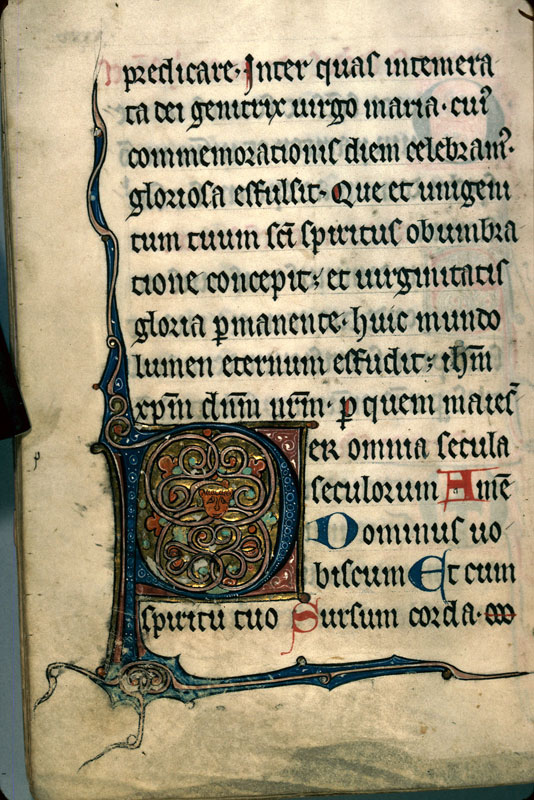 predicare. Inter quas intemera
ta dei genitrix uirgo maria. cuiꝰ
commemorationis diem celebramꝰ.
gloriosa effulsit. Que et unigeni
tum tuum sc̄i spiritus obumbra
tione concepit; et uirginitatis
gloria ꝑmanente. huic mundo
lumen eternum effudit; ih̄m
xp̄m dn̄m nr̄m. ꝑ quem maies̄
Per omnia secula
seculorum Amē
Dominus uo
biscum Et cum
spiritu tuo Sursum corda.